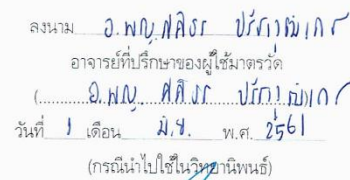 ลงนาม อ.พญ. ศศิธร
อาจารย์ที่ปรึกษาของผู้ใช้มาตรวัด
(อ.พญ. ศศิธร
วันที่ 1 เดือน มิ.ย. พ.ศ. 2561
(กรณีนำไปใช้ในวิทยานิพนธ์)